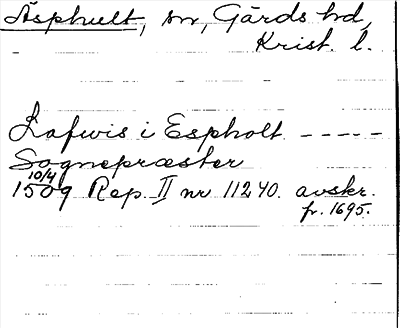 Äsphult, sn, Gärds hd,
Krist. l.
Lafwis i Espholt -----
Sognepræster
10/4
1509 Rep. II nr 11240. avskr.
fr. 1695.